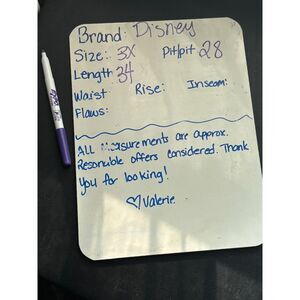 Brand: Disney
Size: 3X Pit/pit 28
Length 34
Waist Rise: Inseam:
Flaws:
ALL Measurements are approx.
Resonuble offers considered. Thank
you for looking!
♡ Valerie